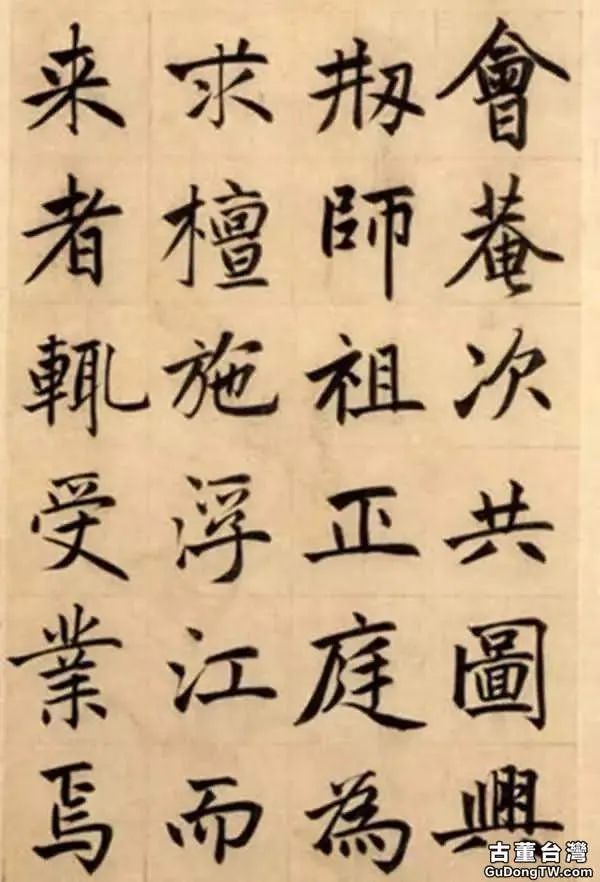 會菴次共圖興
剏師祖正庭為
求檀施浮江而
来者輒受業焉
古董台灣
GuDongTW.com